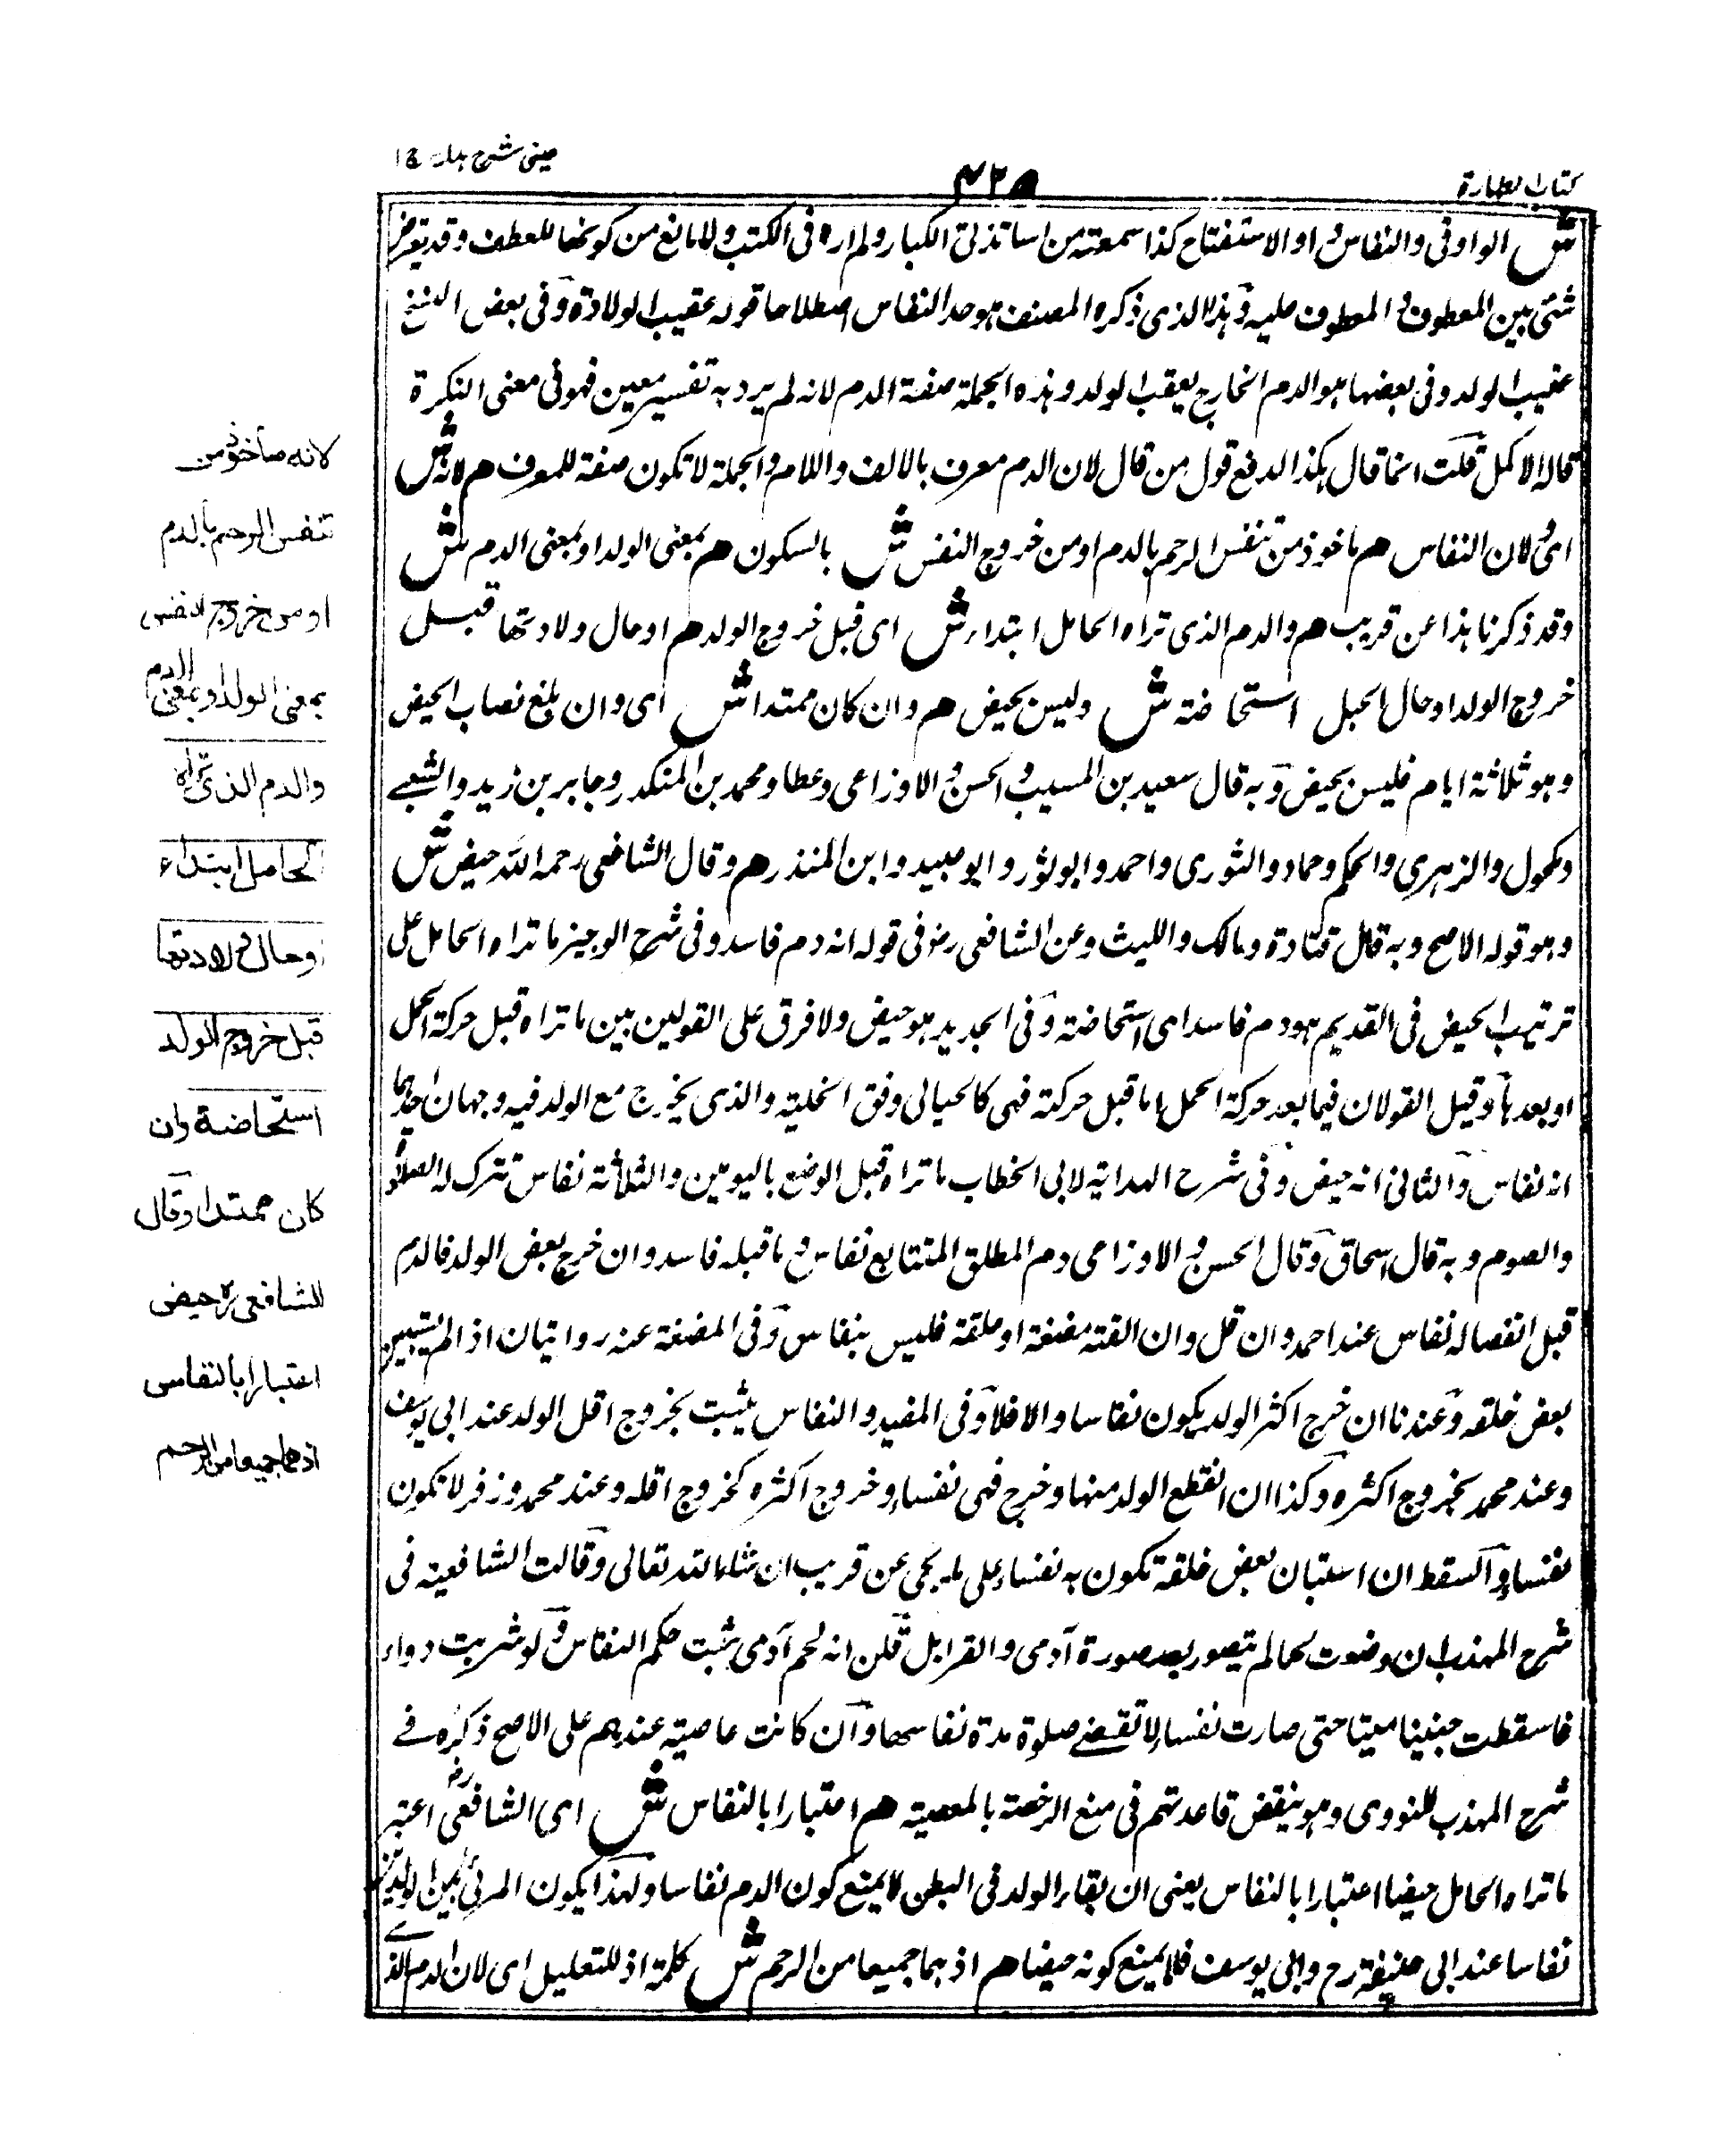 كتاب الطهارة
عينى شرح هداية ج ١
ش الواو فى والنفاس واو الاستفتاح كذا سمعته من اساتذتى الكبار ولم اره فى الكتب ولا مانع من كونها للعطف وقد يعترض
شئ بين المعطوف والمعطوف عليه وهذا الذى ذكره المصنف هو حد النفاس اصطلاحا قوله عقيب الولادة وفى بعض النسخ
عقيب الولد وفى بعضها هو الدم الخارج يعقب الولد وهذه الجملة صفة الدم لانه لم يرد به تفسير معين فهو فى معنى النكرة
قاله الاكمل قلت انما قال هكذا لدفع قول من قال لان الدم معرف بالالف واللام والجملة لا تكون صفة للمعرف هم لانه ش
اى لان النفاس هم ماخوذ من تنفس الرحم بالدم او من خروج النفس ش بالسكون هم بمعنى الولد او بمعنى الدم ش
وقد ذكرنا هذا عن قريب هم والدم الذى تراه الحامل ابتداء ش اى قبل خروج الولد هم او حال ولادتها قبل
خروج الولد او حال الحبل استحاضة ش وليس بحيض هم وان كان ممتدا ش اى وان بلغ نصاب الحيض
وهو ثلاثة ايام فليس بحيض وبه قال سعيد بن المسيب والحسن والاوزاعى وعطا ومحمد بن المنكدر وجابر بن زيد والشعبے
ومكحول والزهرى والحكم وحماد والثورى واحمد وابو ثور وابو عبيد وابن المنذر هم وقال الشافعى رحمه الله حيض ش
وهو قوله الاصح وبه قال قتادة ومالك والليث وعن الشافعى رض فى قوله انه دم فاسد وفى شرح الوجيز ما تراه الحامل على
ترتيب الحيض فى القديم هو دم فاسد اى استحاضة وفى الجديد هو حيض ولا فرق على القولين بين ما تراه قبل حركة الحمل
او بعدها وقيل القولان فيما بعد حركة الحمل اما قبل حركته فهى كالحيالى وفق الخلية والذى يخرج مع الولد فيه وجهان احدهما
انه نفاس والثانى انه حيض وفى شرح الهداية لابى الخطاب ما تراه قبل الوضع باليومين والثلاثة نفاس تترك له الصلاة
والصوم وبه قال اسحاق وقال الحسن والاوزاعى دم المطلق المتتابع نفاس وما قبله فاسد وان خرج بعض الولد فالدم
قبل انفصاله نفاس عند احمد وان قل وان القته مضغة او علقة فليس بنفاس وفى المضغة عنه روايتان اذا لم يتبين
بعض خلقه وعندنا ان خرج اكثر الولد يكون نفاسا والا فلا وفى المفيد والنفاس يثبت بخروج اقل الولد عند ابى يوسف
وعند محمد بخروج اكثره وكذا ان انقطع الولد منها وخرج فهى نفساء وخروج اكثره كخروج اقله وعند محمد وزفر لا تكون
نفساء والسقط ان استبان بعض خلقه تكون به نفساء على ما يجى عن قريب ان شاء الله تعالى وقالت الشافعية فى
شرح المهذب ان وضعت لحما لم يتصور بعد صورة آدمى والقوابل قلن انه لحم آدمى يثبت حكم النفاس ولو شربت دواء
فاسقطت جنينا ميتا حتى صارت نفساء لا تقضے صلوة مدة نفاسها وان كانت عاصية عندهم على الاصح ذكره فے
شرح المهذب للنووى وهو ينقض قاعدتهم فى منع الرخصة بالمعصية هم اعتبارا بالنفاس ش اى الشافعى رض اعتبر
ما تراه الحامل حيضا اعتبارا بالنفاس يعنى ان بقاء الولد فى البطن لا يمنع كون الدم نفاسا ولهذا يكون المرئى بين الولدين
نفاسا عند ابى حنيفة رح وابى يوسف فلا يمنع كونه حيضا هم اذ هما جميعا من الرحم ش كلمة اذ للتعليل اى لان الدم الذے
لانه مأخوذ من
تنفس الرحم بالدم
او من خروج النفس
بمعنى الولد او بمعنى الدم
والدم الذى تراه
الحامل ابتداء
او حال ولادتها
قبل خروج الولد
استحاضة وان
كان ممتدا وقال
الشافعى ره حيض
اعتبارا بالنفاس
اذ هما جميعا من الرحم